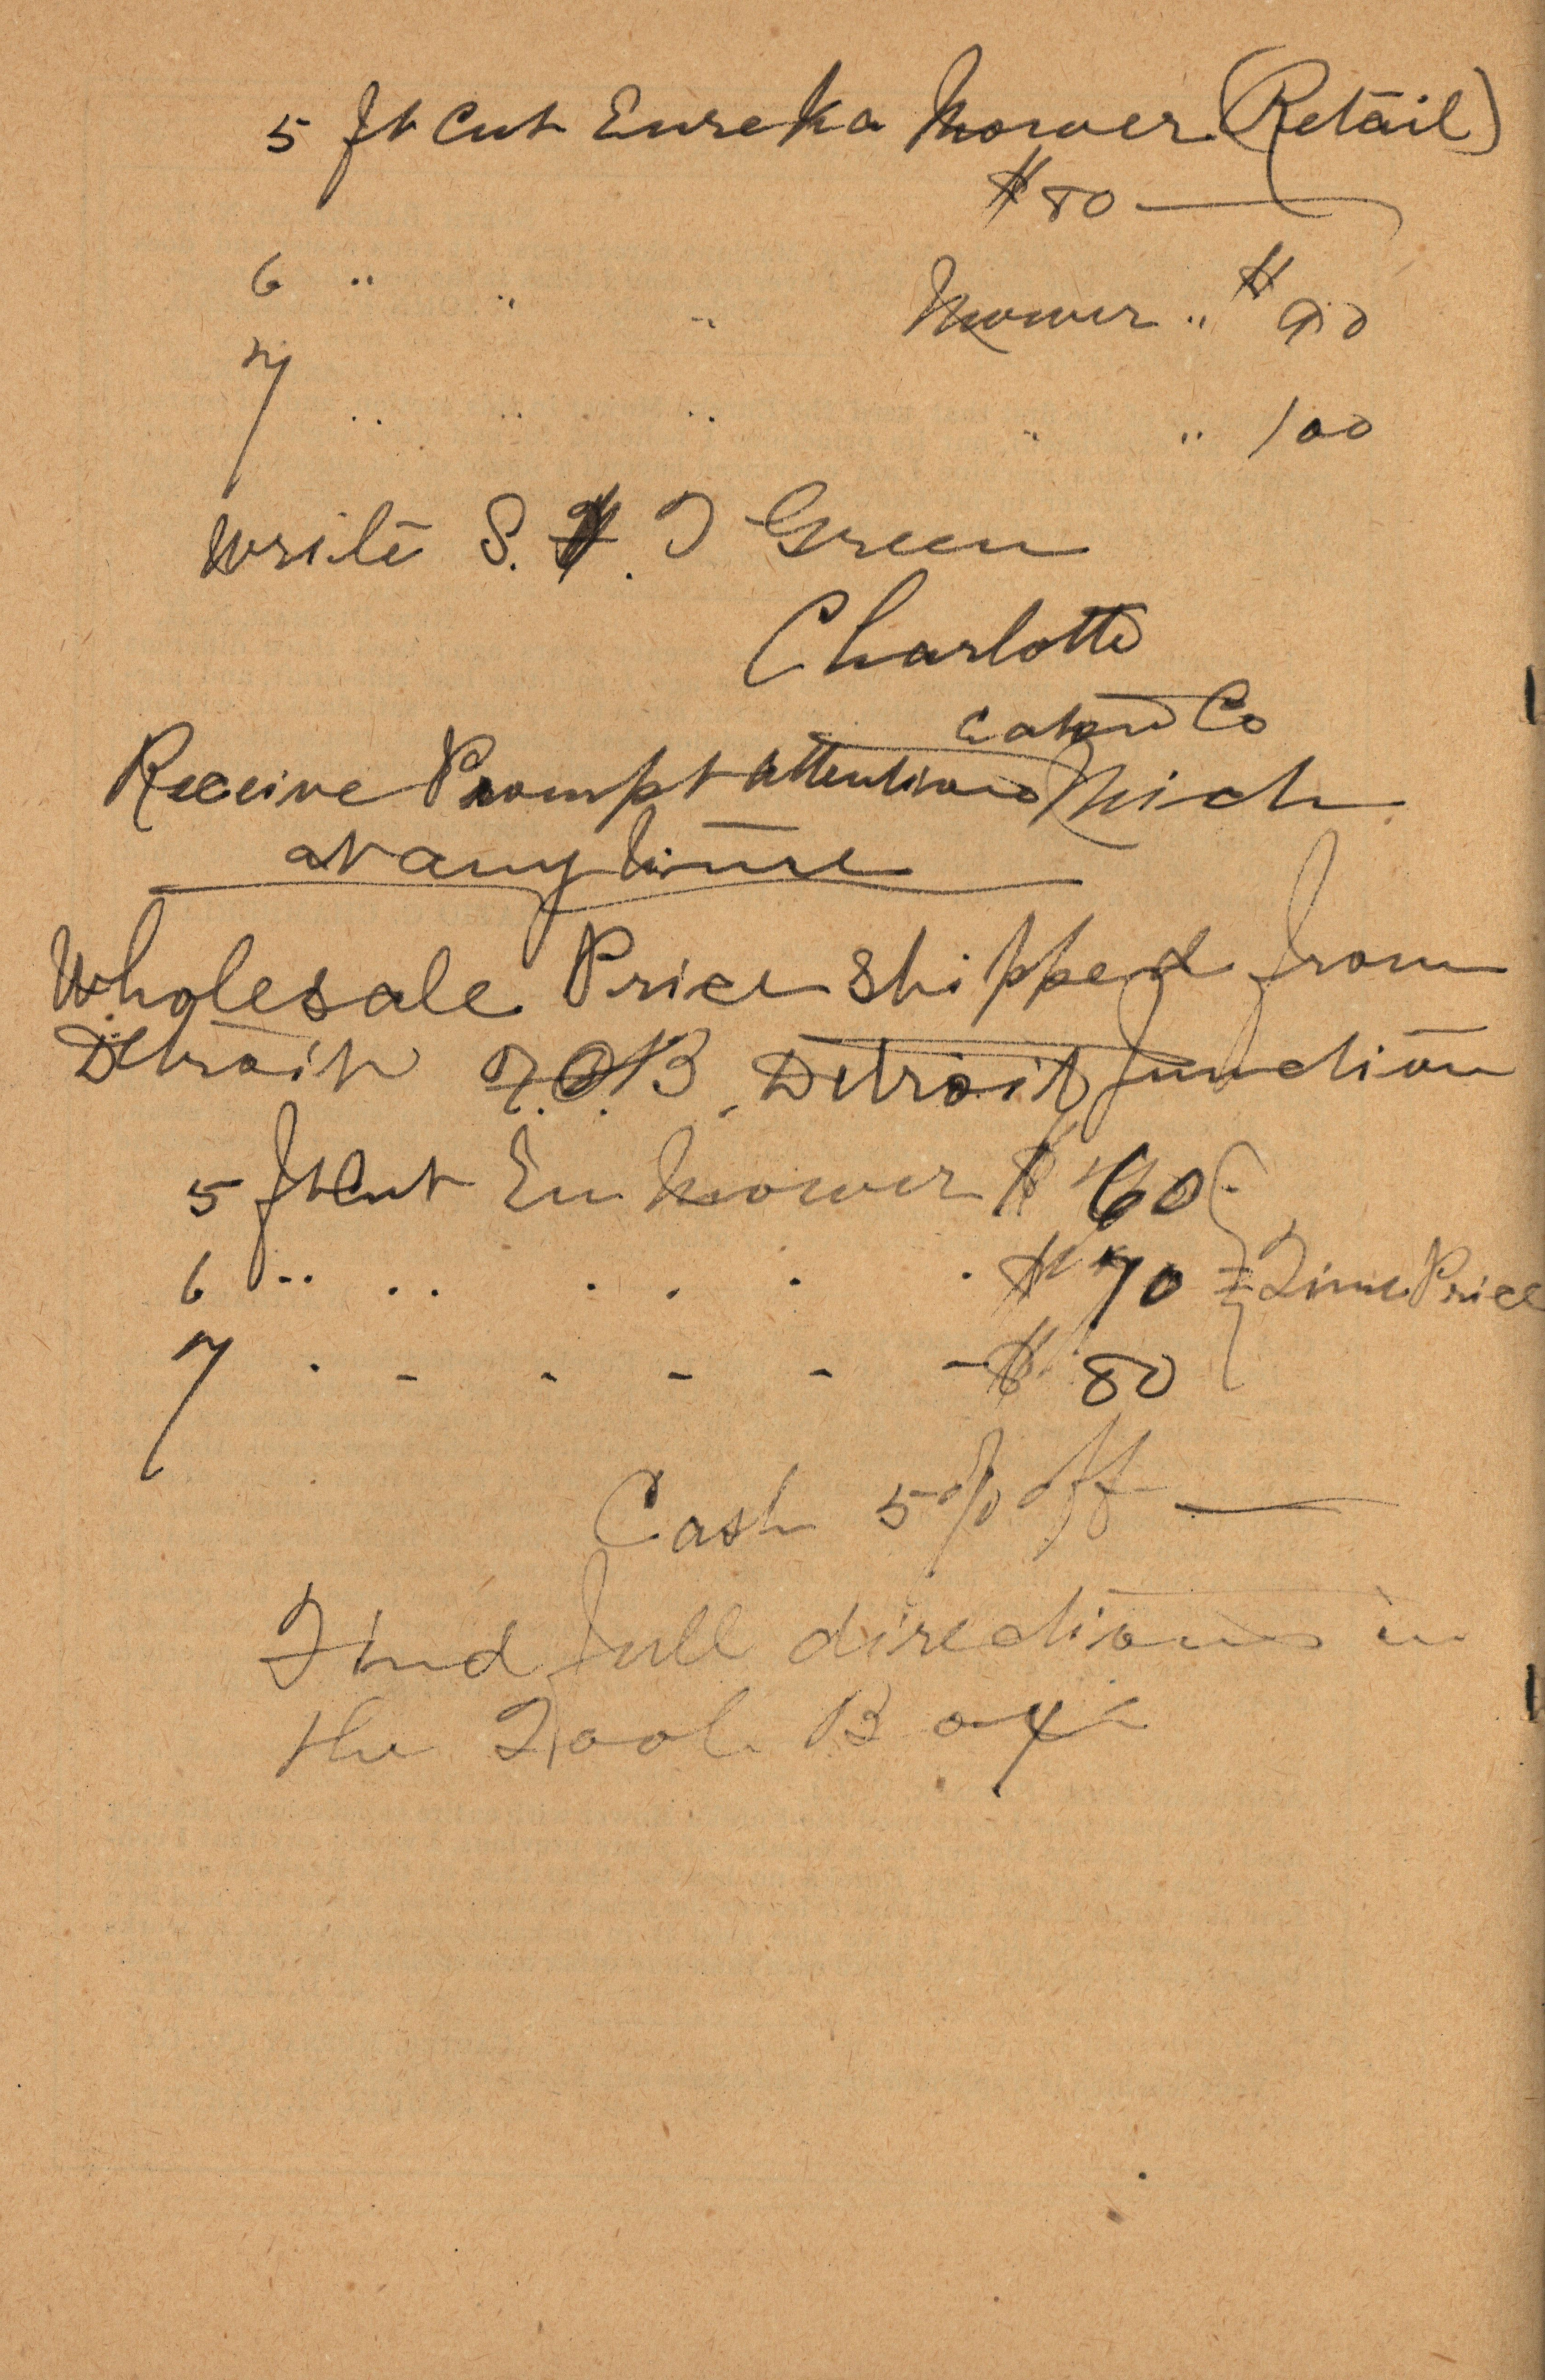 5 ft Cut Eureka Mower (Retail)
$80 —
6 " " " Mower " $90
7 " " " " " 100
Write S. T Green
Charlotte
Eaton Co
Receive Prompt attention Mich
at any time
Wholesale Price shipped from
Detroit F.O.B. Detroit Junction
5 ft Cut Eu Mower $60
6 " " " " " $70 = Time Price
7 " " " " " $80
Cash 5% off —
Find full directions in
the Tool Box